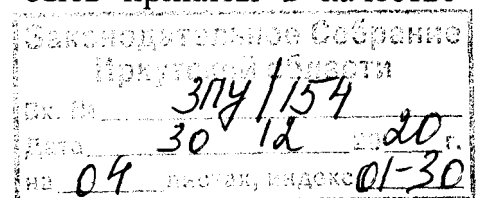 Законодательное Собрание
Иркутской области
Вх. № ЗПУ/154
Дата 30 12 2020 г.
на 04 листах, индекс 01-30